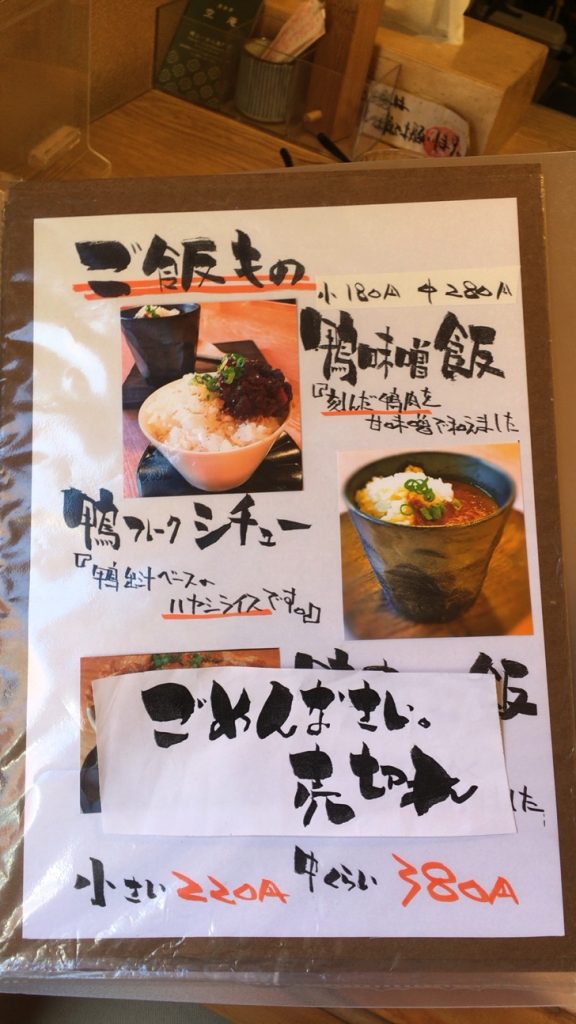 ご飯もの
小180A 中280A
鴨味噌飯
『刻んだ鴨肉を
甘味噌で和えました
鴨フレークシチュー
『鴨出汁ベースの
ハヤシライスです。』
鴨
飯
ごめんなさい。
売切れ
した
小さい 220A
中くらい 380A